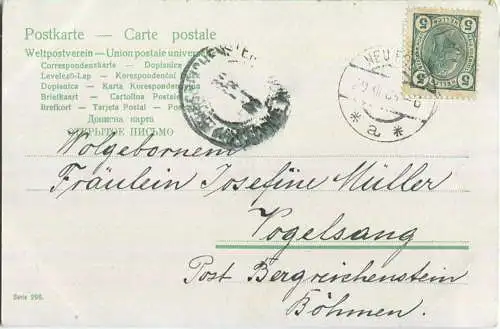 Postkarte — Carte postale
Weltpostverein — Union postale universelle
Correspondenzkarte — Dopisnice
Levelező-Lap — Korespondential
Dopisnica — Karta Korespondent
Briefkaart — Cartolina Postale
Brefkort — Tarjeta Postal — Post
Дописна карта
ОТКРЫТОЕ ПИСЬМО
5 5
5 5
NEU
* a *
Wolgebornem
Fräulein Josefine Müller
Vogelsang
Post Bergreichenstein
Böhmen.
Serie 298.